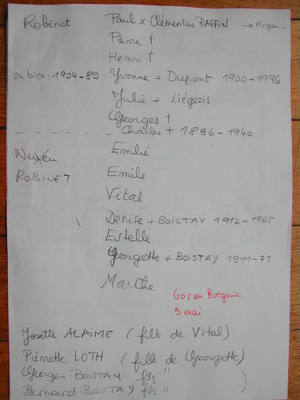 Robinet Paul x Clémentine RAFFIN →
Pierre †
Henri †
ou bien: 1904-89 Yvonne + Dupont 1900-1996
Julie + Liégeois
Georges †
Charles † 1886-1940
Emilie
Neveu
ROBINET Emile
Vital
Denise + BOISTAY 1912-1965
Estelle
Georgette + BOISTAY 1911-71
Marthe
5 mai
Josette ALAIME (fille de Vital)
Pierrette LOTH (fille de Georgette)
Georges BOISTAY fils "
Bernard BOISTAY fils "